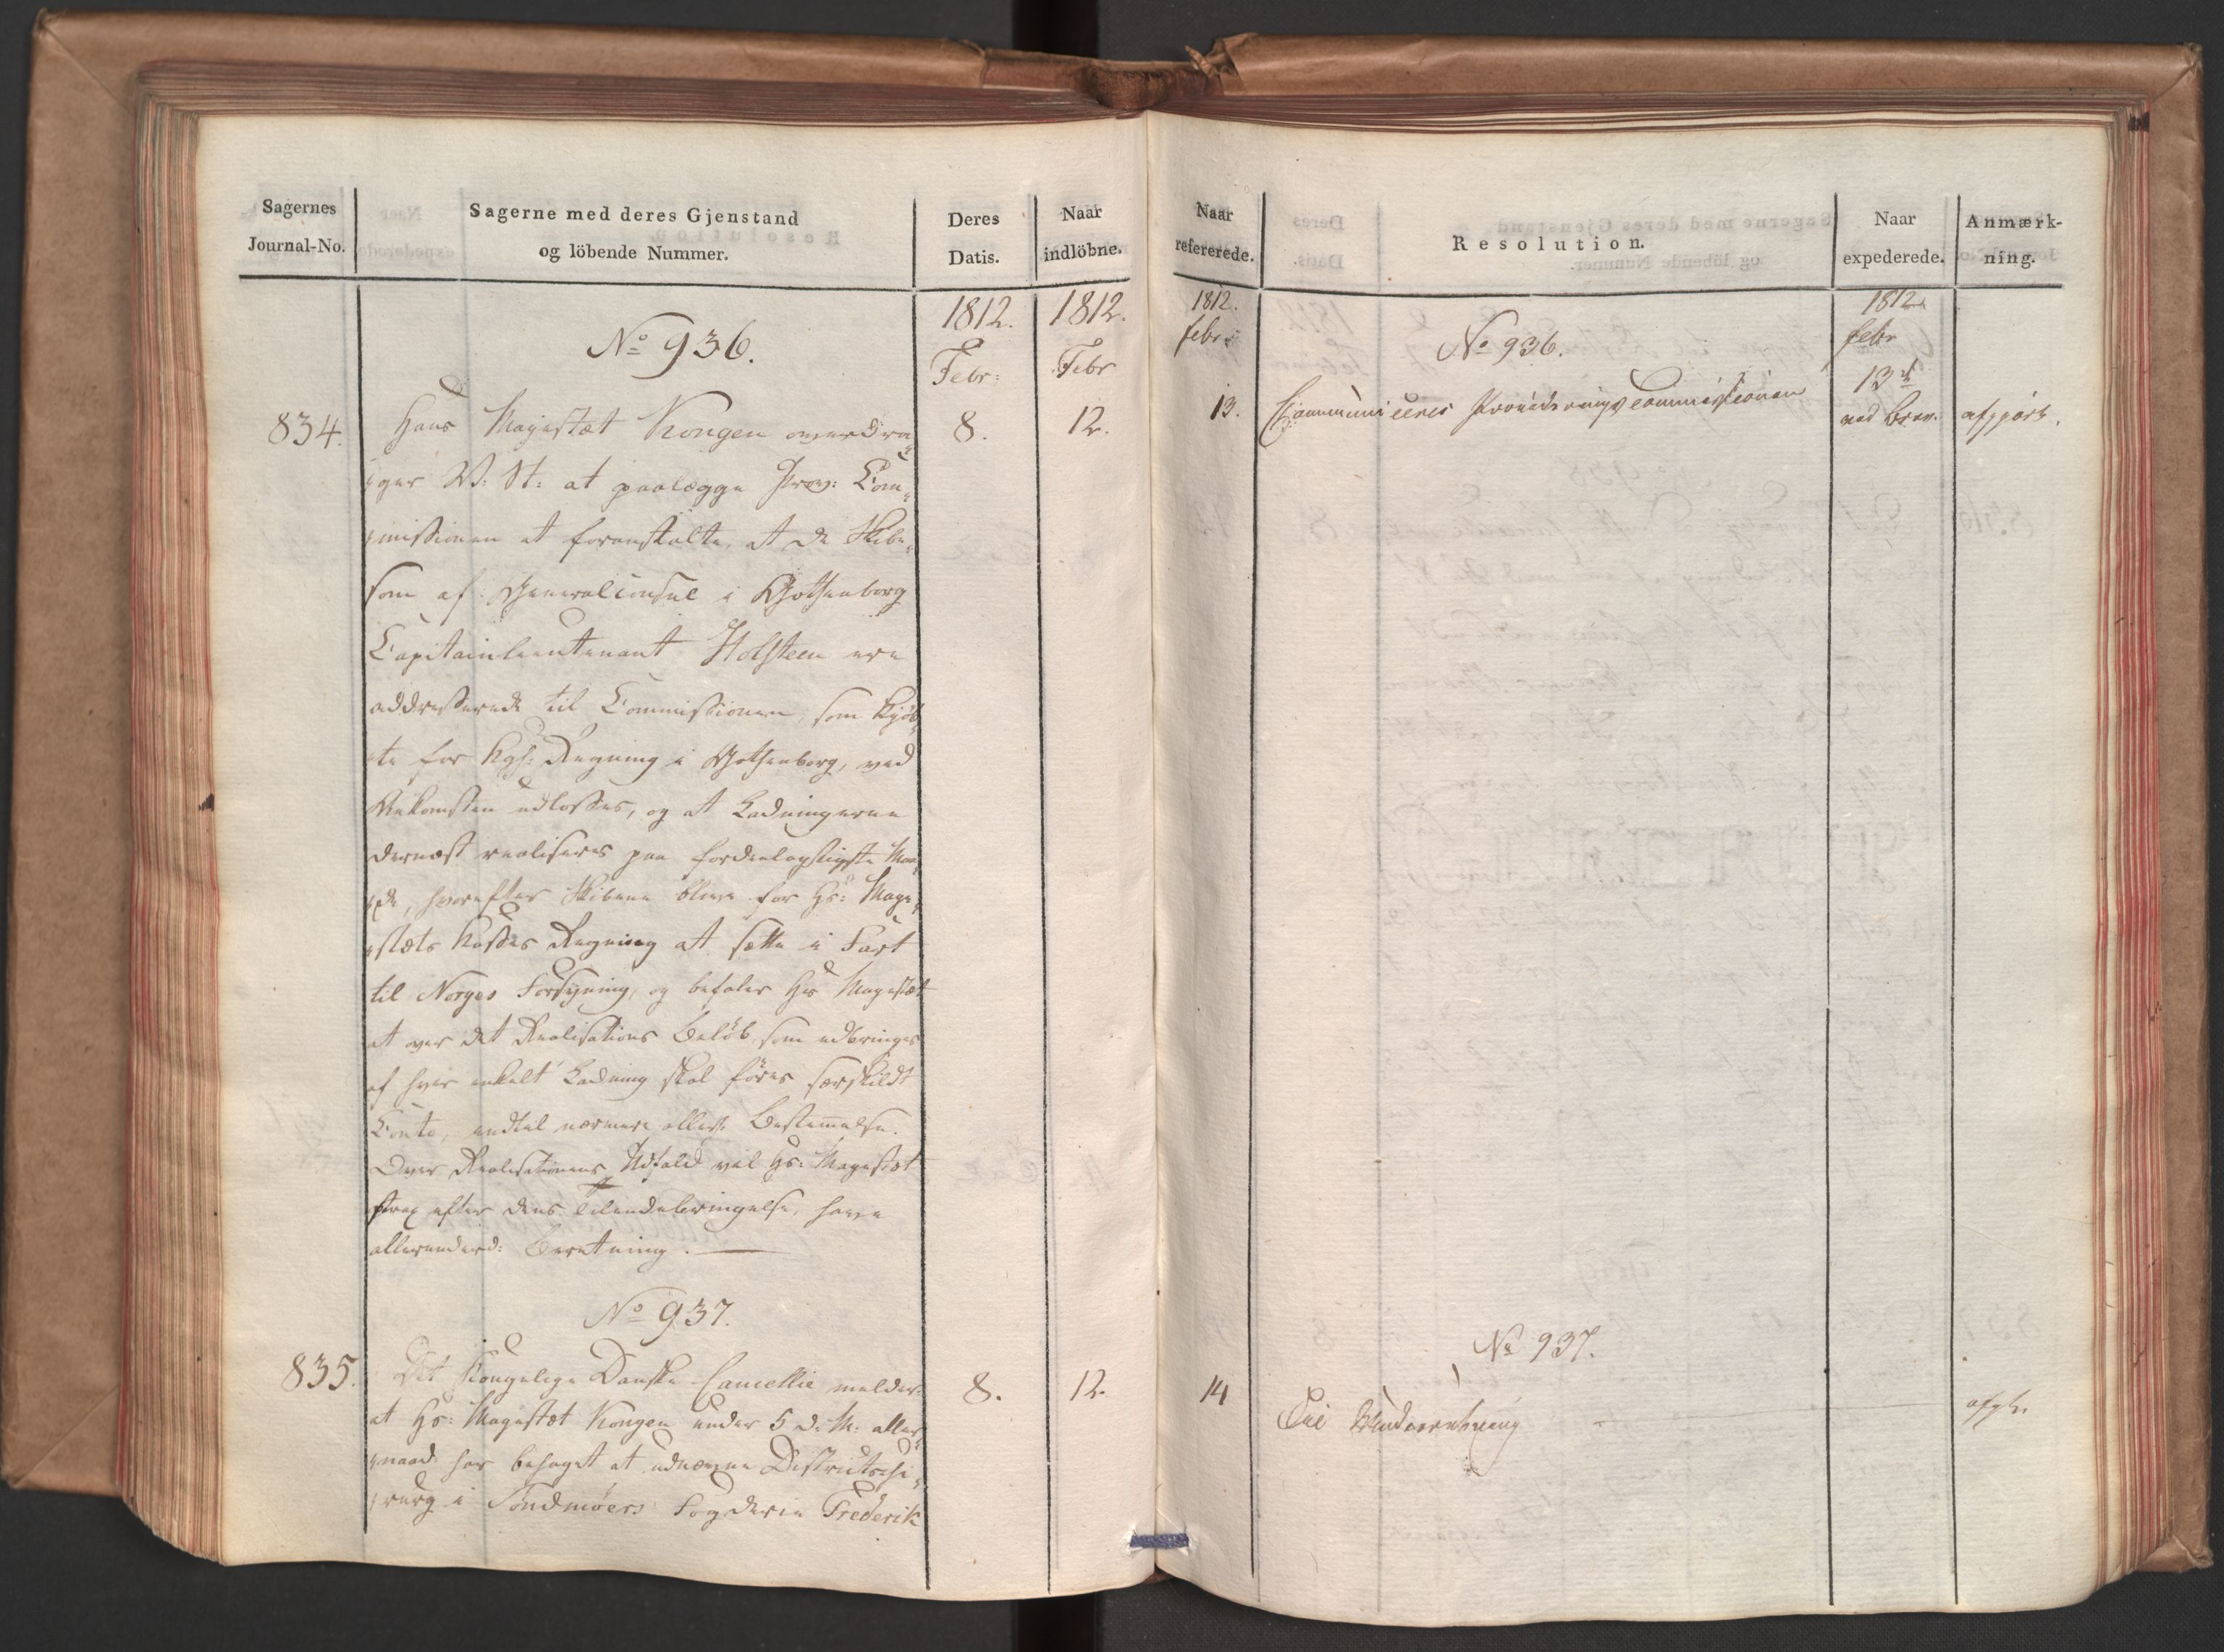 Sagernes
Journal-No.
Sagerne med deres Gjenstand
og löbende Nummer.
Deres
Datis.
Naar
indlöbne.
1812.
Febr:
1812.
Febr
No 936.
834.
Hans Majestæt Kongen overdra,
ger V: St: at paalægge Prov: Com,
missionen at foranstalte, at de Skibe,
som af Generalconsul i Gothenborg
Capitainlieutenant Holsteen ere
addresserede til Commissionen, som kjöb,
te for Kgl: Regning i Gothenborg, ved
Ankomsten udlosses, og at Ladningerne
dernæst realiseres paa fordeelagtigste Maa,
de, hvorefter Skibene blive for Hs: Maje,
stæts Kasses Regning at sætte i Fart
til Norges Forsyning, og befaler Hs Majestæt
at over det Realisations Belöb, som udbringes
af hver enkelt Ladning skal föres særskildt
Conto, indtil nærmere allerh: Bestemmelse.
Over Realisationens Udfald vil Hs: Majestæt
strax efter dens Tilendebringelse, have
allerunderd: Beretning.
8.
12.
No 937.
835.
Det Kongelige Danske Cancellie melder
at Hs: Majestæt Kongen under 5 d: M: aller,
naad: har behaget at udnævne Districtschi,
rurg i Söndmöers Fogderie Frederik
8.
12.
Naar
refererede.
Resolution.
Naar
expederede.
Anmærk-
ning.
1812.
febr:
1812.
febr
No 936.
13.
Communiceres Provideringscommissionen
13d
ved Brev.
afgjort.
No 937.
14
Til Underretning
afgh.